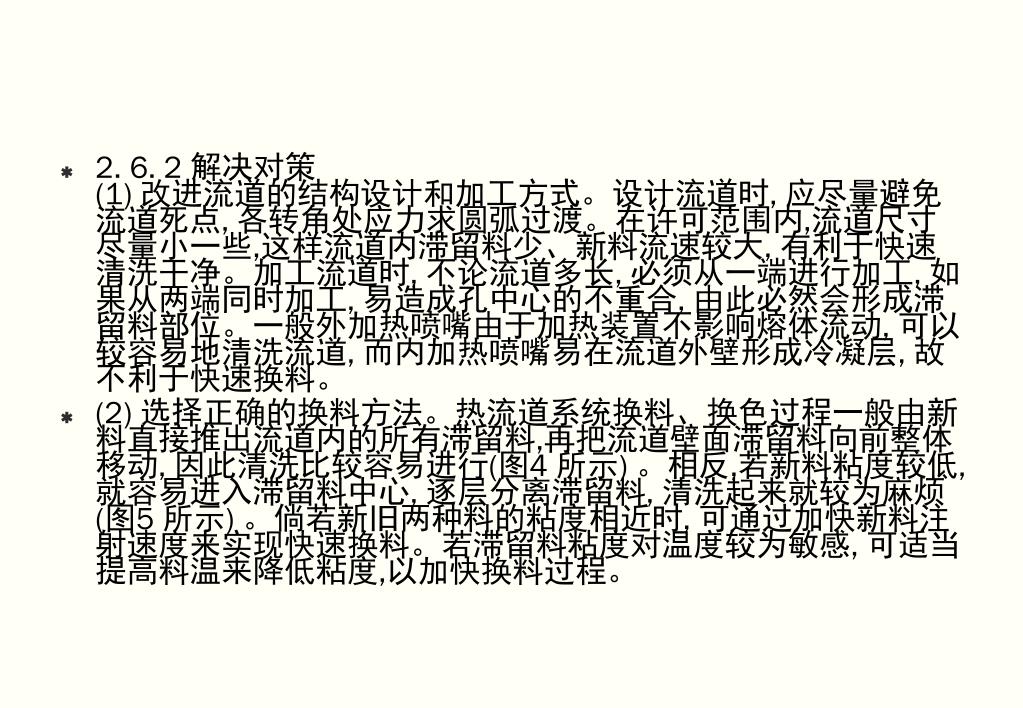 * 2. 6. 2 解决对策
(1) 改进流道的结构设计和加工方式。设计流道时, 应尽量避免
流道死点, 各转角处应力求圆弧过渡。在许可范围内,流道尺寸
尽量小一些,这样流道内滞留料少、新料流速较大, 有利于快速
清洗干净。加工流道时, 不论流道多长, 必须从一端进行加工, 如
果从两端同时加工, 易造成孔中心的不重合, 由此必然会形成滞
留料部位。一般外加热喷嘴由于加热装置不影响熔体流动, 可以
较容易地清洗流道, 而内加热喷嘴易在流道外壁形成冷凝层, 故
不利于快速换料。
* (2) 选择正确的换料方法。热流道系统换料、换色过程一般由新
料直接推出流道内的所有滞留料,再把流道壁面滞留料向前整体
移动, 因此清洗比较容易进行(图4 所示) 。相反,若新料粘度较低,
就容易进入滞留料中心, 逐层分离滞留料, 清洗起来就较为麻烦
(图5 所示) 。倘若新旧两种料的粘度相近时, 可通过加快新料注
射速度来实现快速换料。若滞留料粘度对温度较为敏感, 可适当
提高料温来降低粘度,以加快换料过程。